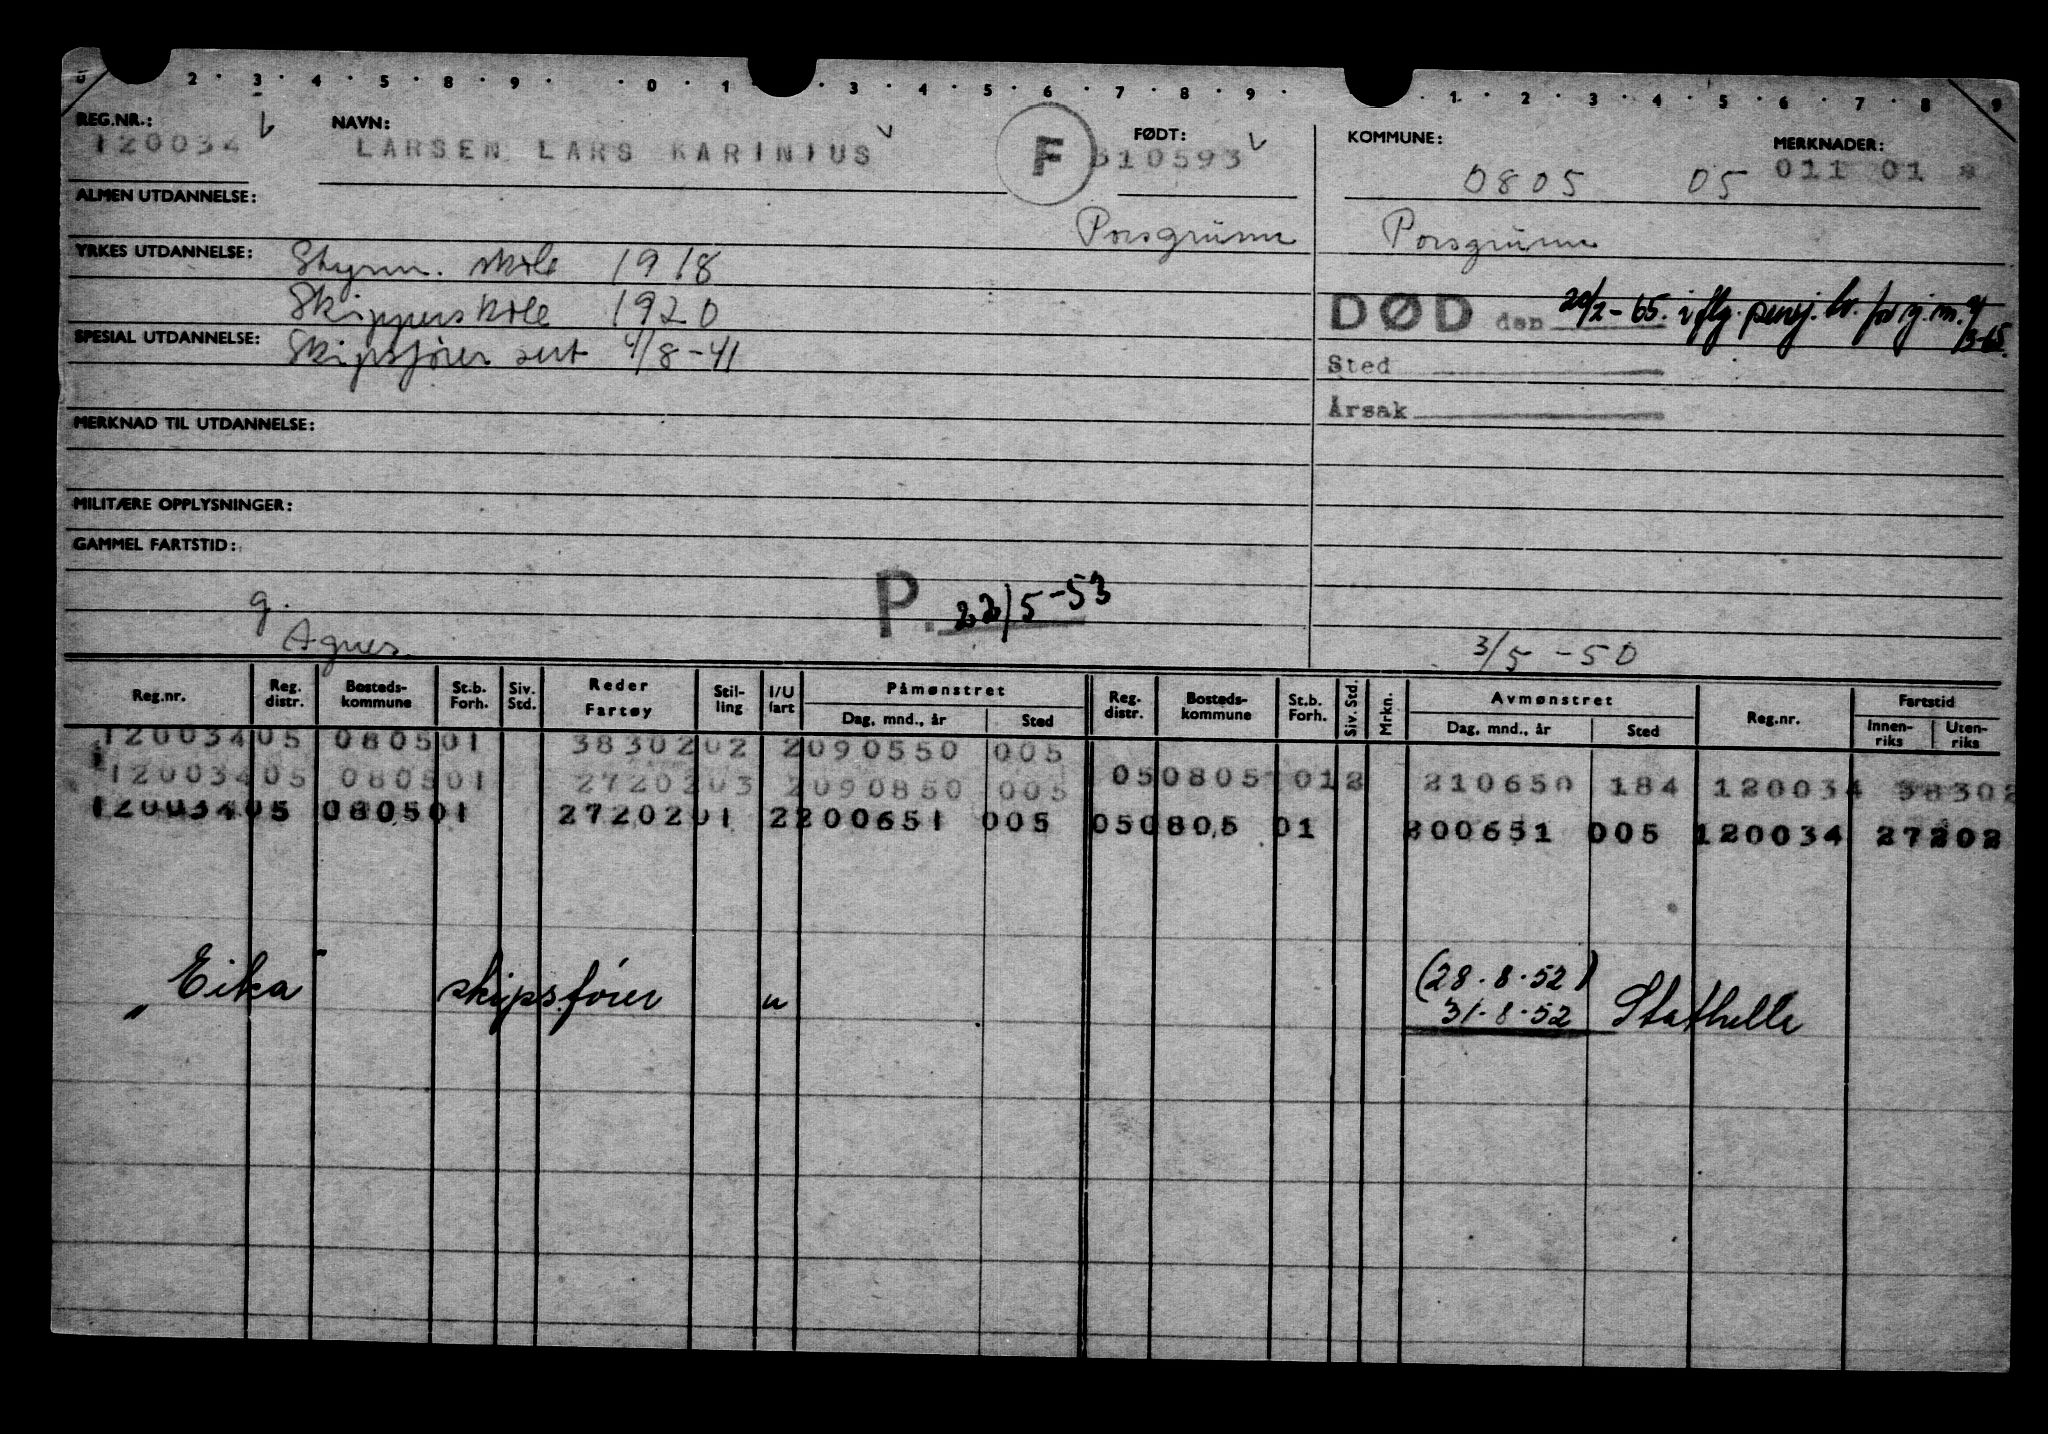 0 2 · 3 · 4 · 5 · 8 · 9 · · 0 · 1 · 3 · 4 · 5 · 6 · 7 · 8 · 9 · · 1 · 2 · 3 · 4 · 5 · 6 · 7 · 8 9
REG.NR.: NAVN: FØDT: KOMMUNE: MERKNADER:
120034 LARSEN LARS KARINIUS F 310593 0805 05 011 01
ALMEN UTDANNELSE: Porsgrunn Porsgrunn
YRKES UTDANNELSE: Styrm. skole 1918
Skipperskole 1920 DØD den 20/2-65. iflg. pensj. br. for sj.m. 9/3-65.
SPESIAL UTDANNELSE: Skipsfører sert 4/8-41
Sted
Årsak
MERKNAD TIL UTDANNELSE:
MILITÆRE OPPLYSNINGER:
GAMMEL FARTSTID:
P. 22/5-53
g.
Agnes 3/5-50
Reg.nr. Reg. distr. Bosteds-kommune St.b. Forh. Siv. Std. Reder Fartøy Stil-ling I/U fart Påmønstret Dag, mnd., år Sted Reg. distr. Bosteds-kommune St.b. Forh. Siv. Std. Mrkn. Avmønstret Dag, mnd., år Sted Reg.nr. Fartstid Innen-riks Uten-riks
120034 05 0805 01 38302 02 2 090550 005
120034 05 0805 01 27202 03 2 090850 005 05 0805 01 2 210650 184 120034 38302
120034 05 0805 01 27202 01 2 200651 005 05 0805 01 200651 005 120034 27202
"Eika" skipsfører u (28.8.52)
31.8.52 Stathelle